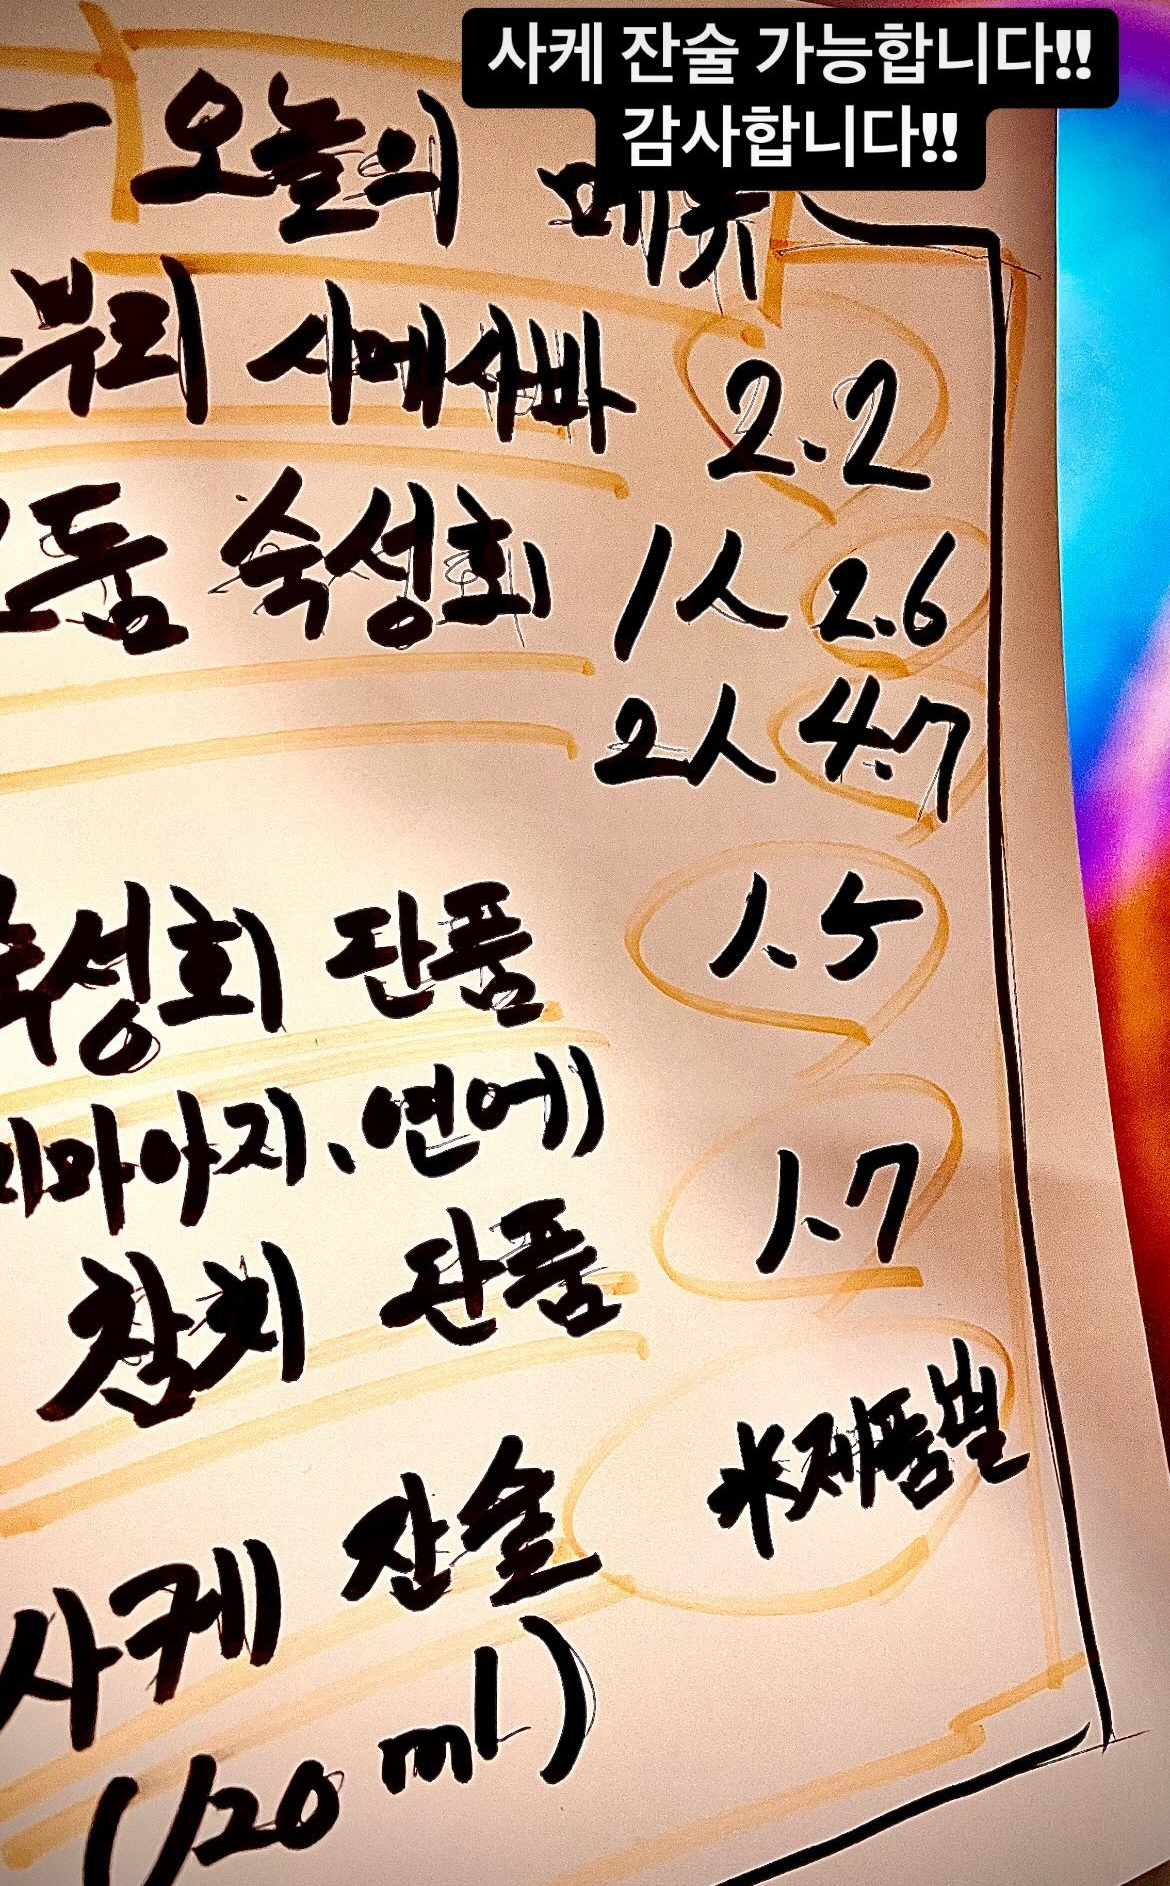 사케 잔술 가능합니다!!
감사합니다!!
오늘의 메뉴
부리 시메사바 2.2
모둠 숙성회 1人 2.6
2人 4.7
숙성회 단품 1.5
시마아지、연어)
참치 단품 1.7
사케 잔술 米제품별
(120ml)